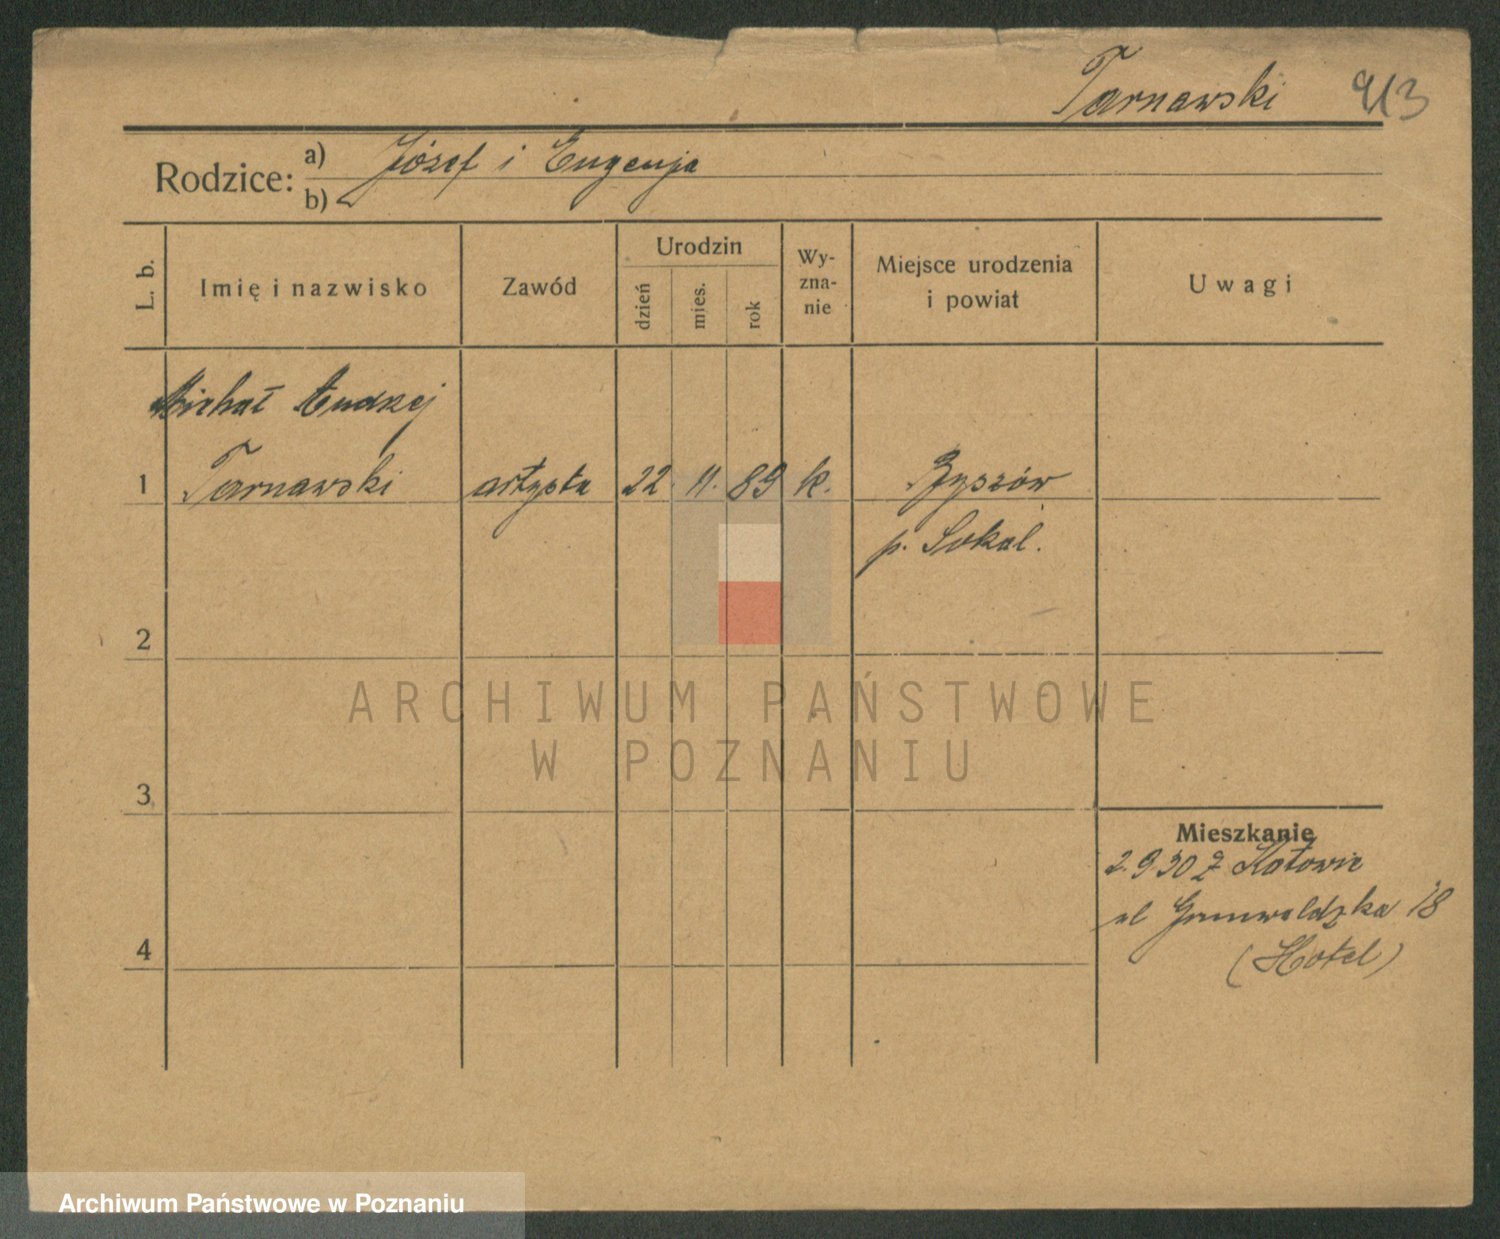 Tarnawski 913
Rodzice: a) Józef i Eugenja
b)
L. b.
Imię i nazwisko
Zawód
Urodzin
dzień
mies.
rok
Wy-
zna-
nie
Miejsce urodzenia
i powiat
Uwagi
Michał Andrzej
1 Tarnawski artysta 22. 11. 89 k.
p. Sokal.
2
3
4
Mieszkanie
2.9 30 z Katowic
ul Grunwaldzka 18
(Hotel)
ARCHIWUM PAŃSTWOWE
W POZNANIU
Archiwum Państwowe w Poznaniu